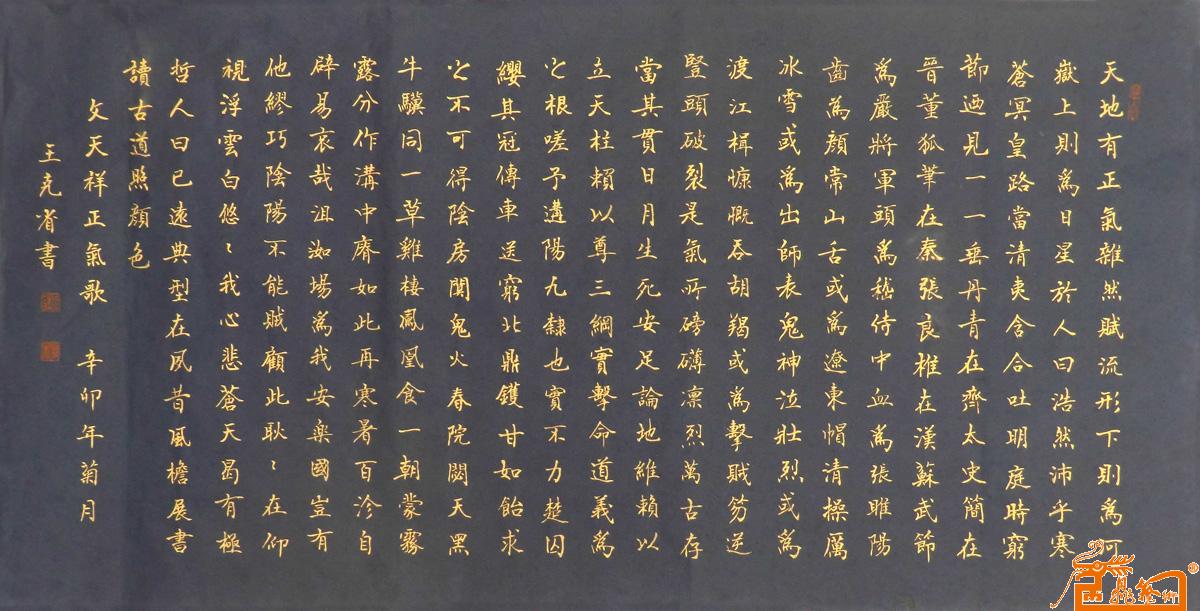 天地有正氣雜然賦流形下則為河
嶽上則為日星於人曰浩然沛乎寒
蒼冥皇路當清夷含合吐明庭時窮
節迺見一一垂丹青在齊太史簡在
晉董狐筆在秦張良椎在漢蘇武節
為嚴將軍頭為嵇侍中血為張睢陽
齒為顏常山舌或為遼東帽清操厲
冰雪或為出師表鬼神泣壯烈或為
渡江楫慷慨吞胡羯或為擊賊笏逆
豎頭破裂是氣所磅礴凜烈萬古存
當其貫日月生死安足論地維賴以
立天柱賴以尊三綱實擊命道義為
之根嗟予遘陽九隸也實不力楚囚
纓其冠傳車送窮北鼎鑊甘如飴求
之不可得陰房闃鬼火春院閟天黑
牛驥同一草雞棲鳳凰食一朝蒙霧
露分作溝中瘠如此再寒暑百沴自
辟易哀哉沮洳場為我安樂國豈有
他繆巧陰陽不能賊顧此耿〻在仰
視浮雲白悠〻我心悲蒼天曷有極
哲人日已遠典型在夙昔風檐展書
讀古道照顏色
文天祥正氣歌 辛卯年菊月
王克省書